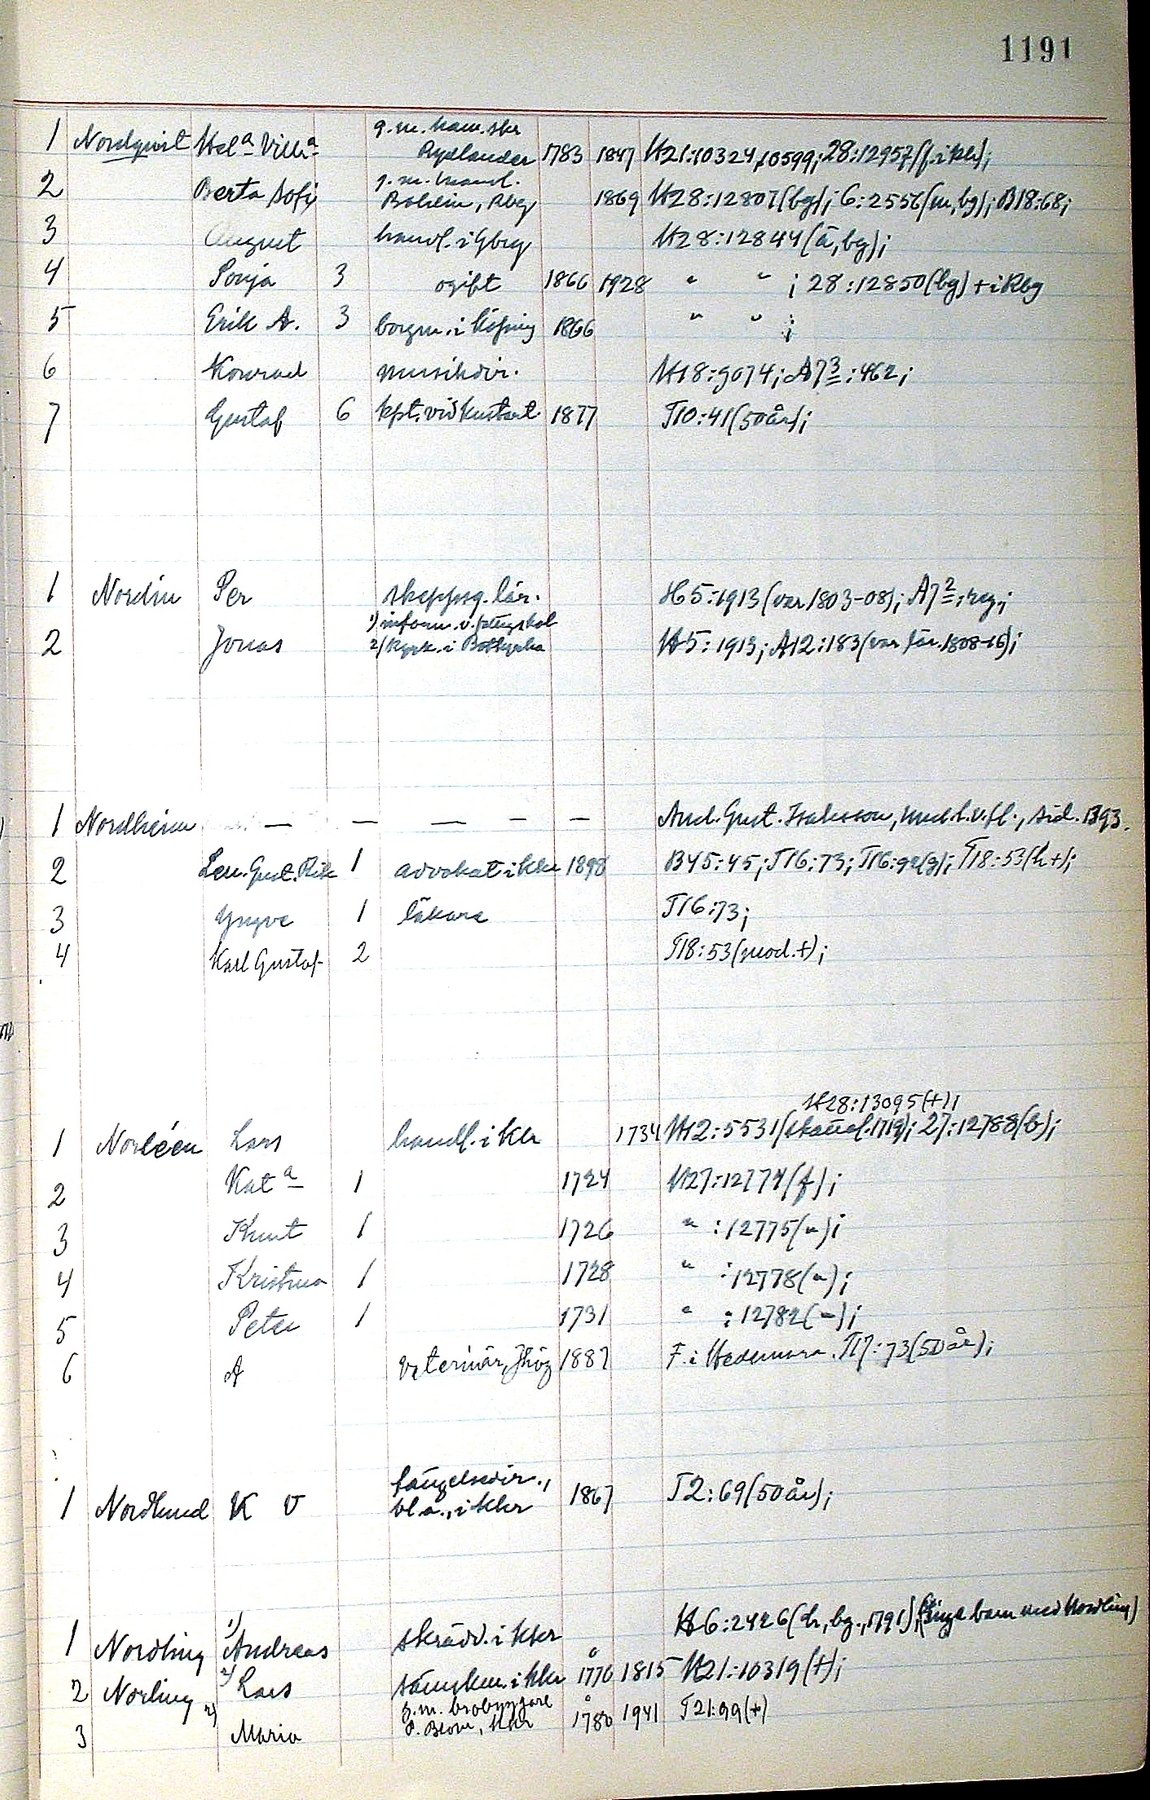 1191
1 Nordqvist Hel<sup>a</sup> Vilh<sup>a</sup> g.m. Rydlander 1783 1847 H21:10324, 10599; 28:12957
2 Berta Sofi g.m. handl. 1869 H28:12807(bg); 6:2556(m,bg); B18:68;
3 August handl. i Gbg H28:12844(ä,bg);
4 Sonja 3 ogift 1866 1928 " " ; 28:12850(bg) + i Kbg
5 Erik A. 3 borgm. i 1866 " " ;
6 Konrad musikdir. H18:9074; A7<sup>3</sup>:462;
7 Gustaf 6 kpt. vid kustart. 1877 T10:41(50år);
1 Nordin Per skeppsg. lär. H5:1913(var 1803-08); A7<sup>2</sup>; reg;
2 Jonas 1) inform. v.
2) kyrk. i Botkyrka H5:1913; A12:183(var lär. 1808-16);
1 Nordheim — — — — — And. Gust. Isaksson, v.fl., sid. 1393.
2 Len. Gust. Rik 1 advokat i Kkr 1898 B45:45; T16:73; T16:92(g); T18:53(h+);
3 Yngve 1 läkare T16:73;
4 Karl Gustaf 2 T18:53(mod.+);
H28:13095(+);
1 Norléen Lars handl. i Kkr 1734 H12:5531(skattel. 1719); 27:12788(b);
2 Kat<sup>a</sup> 1 1724 H27:12774(f);
3 Knut 1 1726 " :12775(");
4 Kristina 1 1728 " :12778(");
5 Peter 1 1731 " :12782(");
6 A veterinär, Jkög 1887 F. i Hedemora. T17:73(50år);
1 Nordlund K V fängelsedir.,
bl.a., i Kkr 1867 T2:69(50år);
1 Nordling 1) Andreas skrädd. i Kkr H6:2426(h, bg., 1791), (inga barn med Nordling)
2 Norling 2) 2) Lars i Kkr 1770 1815 H21:10319(+);
3 Maria g.m. brobyggare
P. Blom, Kkr 1780 1941 T21:99(+)